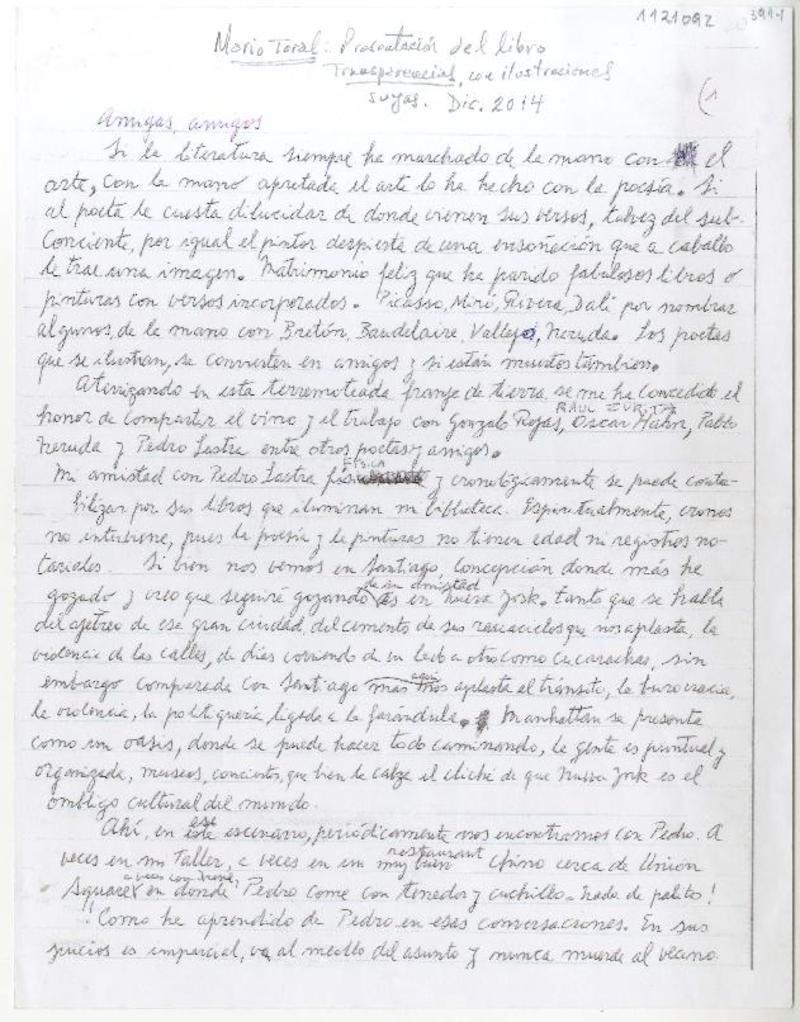 1121092
3991-1
Mario Toral: Presentación del libro
Transparencias, con ilustraciones
suyas. Dic. 2014
(1
Amigas, amigos
Si la literatura siempre ha marchado de la mano con el
arte, con la mano apretada el arte lo ha hecho con la poesía. Si
al poeta le cuesta dilucidar de donde vienen sus versos, talvez del sub-
conciente, por igual el pintor despierta de una ensoñación que a caballo
le trae una imagen. Matrimonio feliz que ha parido fabulosos libros o
pinturas con versos incorporados. Picasso, Miró, Rivera, Dalí por nombrar
algunos, de la mano con Bretón, Baudelaire, Vallejo, Neruda. Los poetas
que se ilustran, se convierten en amigos y si están muertos tambien.
Aterrizando en esta terremoteada franja de tierra, se me ha concedido el
honor de compartir el vino y el trabajo con Gonzalo Rojas, RAUL ZURITA Oscar Hahn, Pablo
Neruda y Pedro Lastra entre otros poetas y amigos.
Mi amistad con Pedro Lastra FISICA y cronológicamente se puede conta-
bilizar por sus libros que iluminan mi biblioteca. Espiritualmente, cronos
no interviene, pues la poesía y la pinturas no tienen edad ni registros no-
tariales. Si bien nos vemos en Santiago, Concepción donde más he
gozado y creo que seguiré gozando de su amistad es en Nueva York. Tanto que se habla
del ajetreo de esa gran ciudad, del cemento de sus rascacielos que nos aplasta, la
violencia de las calles, de días corriendo de un lado a otro como cucarachas, sin
embargo comparada con Santiago más aquí nos aplasta el tránsito, la burocracia,
la violencia, la politiquería ligada a la farándula. Manhattan se presenta
como un oasis, donde se puede hacer todo caminando, la gente es puntual y
organizada, museos, conciertos, que bien le calza el cliché de que Nueva York es el
ombligo cultural del mundo.
Ahí, en ese escenario, periódicamente nos encontramos con Pedro. A
veces en mi Taller, a veces en un muy buen restaurant chino cerca de Union
Square, a veces con Irene, en donde Pedro come con tenedor y cuchillo. Nada de palito!
!! Como he aprendido de Pedro en esas conversaciones. En sus
juicios es imparcial, va al meollo del asunto y nunca muerde al vecino.